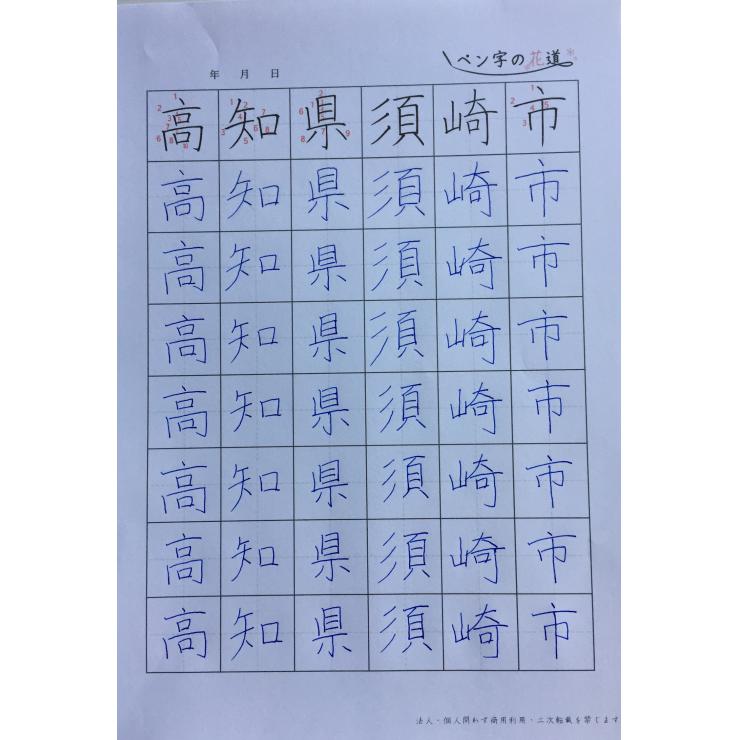 ペン字の花道
年 月 日
高知県須崎市
高知県須崎市
高知県須崎市
高知県須崎市
高知県須崎市
高知県須崎市
高知県須崎市
高知県須崎市
法人・個人問わず商用利用・二次転載を禁じます